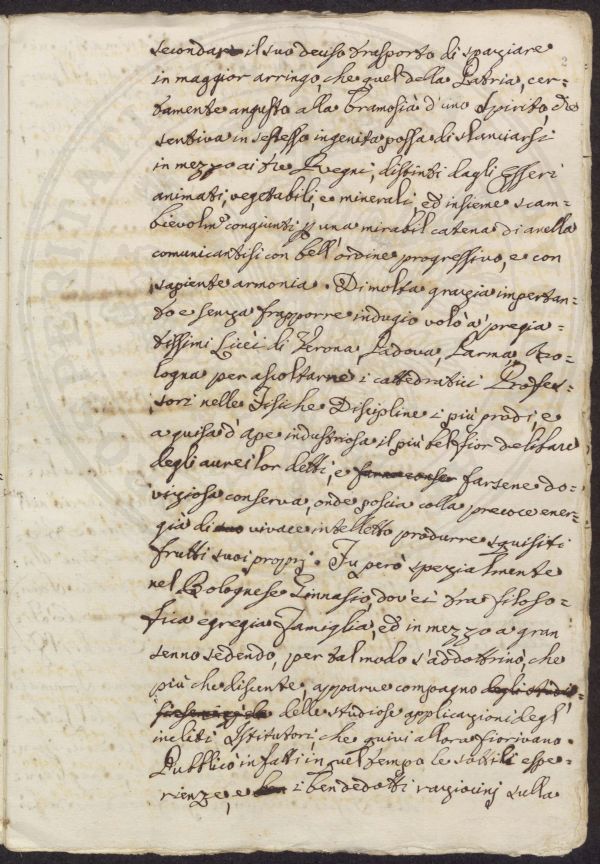 2
secondare il suo deciso trasporto di spaziare
in maggior arringo, che quel della Patria, cer-
tamente angusto alla bramosia d'uno Spirito, che
sentiva in se stesso ingenita possa di slanciarsi
in mezzo ai tre Regni, distinti dagli Esseri
animati, vegetabili, e minerali, ed insieme scam-
bievolm.e congiunti p una mirabil catena di anella
comunicantisi con bell'ordine progressivo, e con
sapiente armonia. Di molta grazia impertan-
to e senza frapporre indugio volò a' pregia-
tissimi Licei di Verona, Padova, Parma, Bo-
logna per ascoltarne i cattedratici Profes-
sori nelle Fisiche Discipline i più prodi, e
a guisa d'Ape industriosa il più bel fior delibare
degli aurei lor detti, e farne conser farsene do-
viziosa conserva, onde poscia colla precoce ener-
gia di suo vivace intelletto produrre squisiti
frutti suoi proprj. Fu però spezialmente
nel Bolognese Ginnasio, dov'ei tra filoso-
fica egregia Famiglia, ed in mezzo a gran
senno sedendo, per tal modo s'addottrinò, che
più che discente, apparve compagno degli studj
delle studiose applicazioni degl'
incliti Istitutori, che quivi allora fiorivano.
Pubblicò infatti in quel tempo le sottili espe-
rienze, e ben i ben dedotti raziocinj sulla